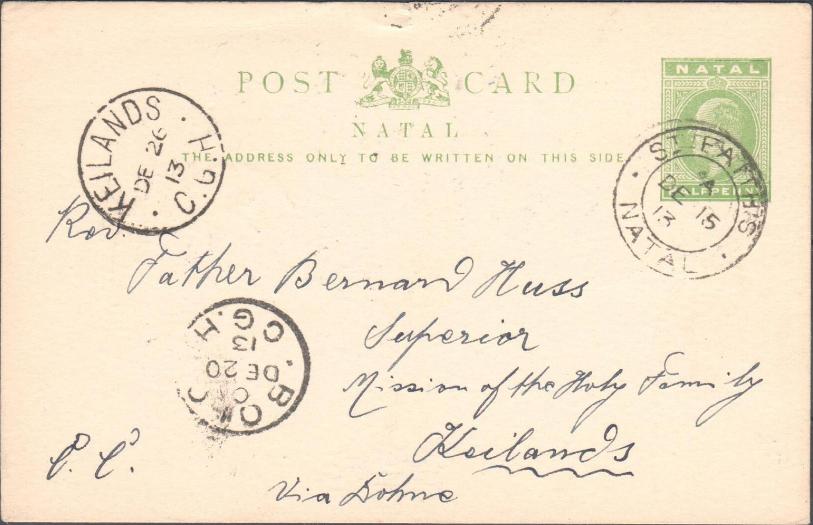 POST CARD
NATAL
THE ADDRESS ONLY TO BE WRITTEN ON THIS SIDE.
NATAL
HALFPENNY
KEILANDS · C.G.H. ·
DE 26
13
ST. FAITHS · NATAL ·
A
DE 15
13
Rev.
Father Bernard Huss
Superior
Mission of the Holy Family
Keilands
Via Dohne
C.G.H
DE 20
13
C. C.